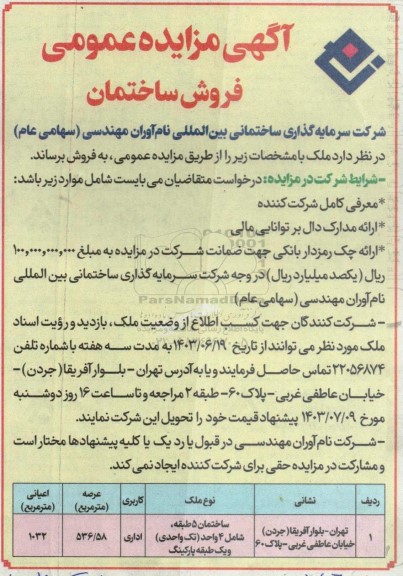 آگهی مزایده عمومی
فروش ساختمان
شرکت سرمایه گذاری ساختمانی بین‌المللی نام‌آوران مهندسی (سهامی عام)
در نظر دارد ملک با مشخصات زیر را از طریق مزایده عمومی، به فروش برساند.
-شرایط شرکت در مزایده: درخواست متقاضیان می بایست شامل موارد زیر باشد:
*معرفی کامل شرکت کننده
*ارائه مدارک دال بر توانایی مالی
*ارائه چک رمزدار بانکی جهت ضمانت شرکت در مزایده به مبلغ ۱۰۰,۰۰۰,۰۰۰,۰۰۰
ریال (یکصد میلیارد ریال) در وجه شرکت سرمایه گذاری ساختمانی بین المللی
نام‌آوران مهندسی (سهامی عام)
ParsNamadData
-شرکت کنندگان جهت کسب اطلاع از وضعیت ملک، بازدید و رؤیت اسناد
ملک مورد نظر می توانند از تاریخ ۱۴۰۳/۰۶/۱۹ به مدت سه هفته با شماره تلفن
۲۲۰۵۶۸۷۴ تماس حاصل فرمایند و یا به آدرس تهران - بلوار آفریقا (جردن) -
خیابان عاطفی غربی - پلاک ۶۰- طبقه ۲ مراجعه و تا ساعت ۱۶ روز دوشنبه
مورخ ۱۴۰۳/۰۷/۰۹ پیشنهاد قیمت خود را تحویل این شرکت نمایند.
-شرکت نام‌آوران مهندسی در قبول یا رد یک یا کلیه پیشنهادها مختار است
و مشارکت در مزایده حقی برای شرکت کننده ایجاد نمی کند.
ردیف نشانی نوع ملک کاربری عرصه (مترمربع) اعیانی (مترمربع)
۱ تهران-بلوار آفریقا (جردن) خیابان عاطفی غربی-پلاک ۶۰ ساختمان ۵ طبقه، شامل ۴ واحد (تک واحدی) و یک طبقه پارکینگ اداری ۵۳۶/۵۸ ۱۰۳۲